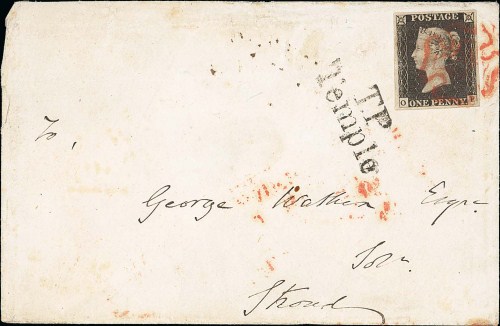 POSTAGE
O E
ONE PENNY
TP
Temple
To,
George Wathen Esqre
Solr
Stroud